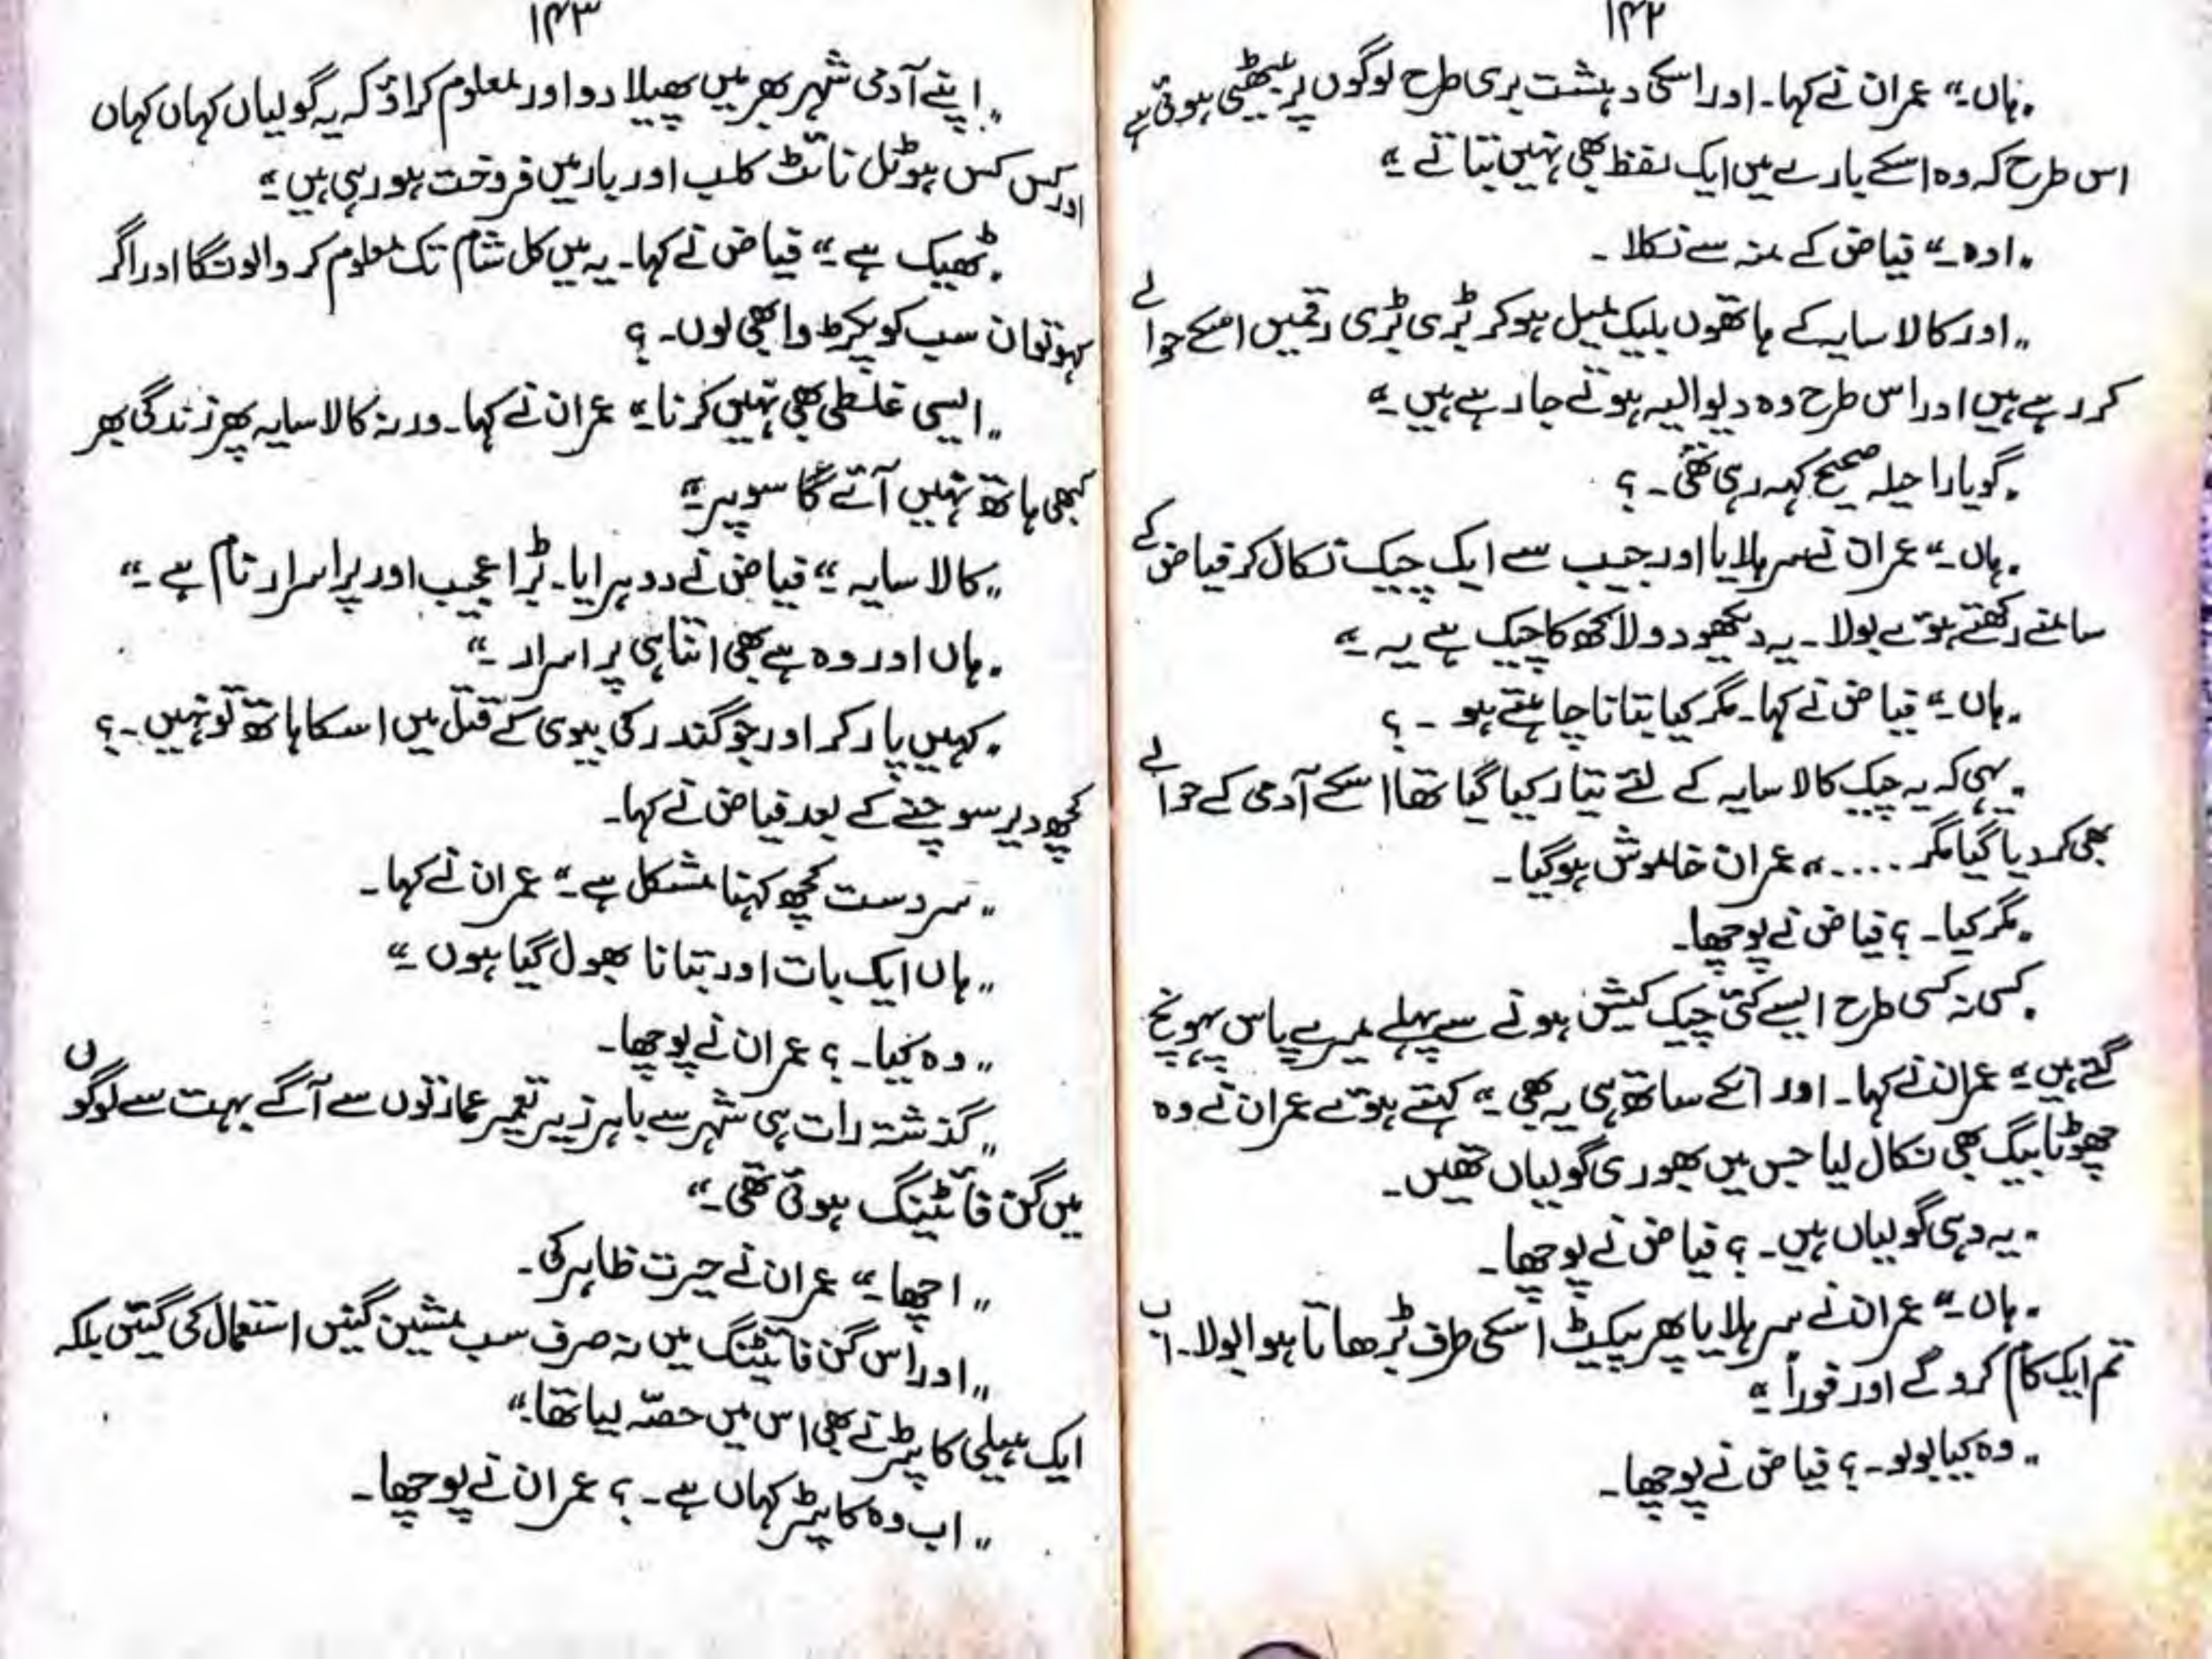 ۱۴۲
"ہاں۔" عمران نے کہا۔ اور اسکی دہشت بری طرح لوگوں پر بیٹھی ہوئی ہے
اس طرح کہ وہ اسکے بارے میں ایک لفظ بھی نہیں بتاتے۔"
"اوہ۔" فیاض کے منہ سے نکلا۔
"اور کالا سایہ کے ہاتھوں بلیک میل ہو کر بڑی بڑی رقمیں اسکے حوالے
کر رہے ہیں اور اس طرح وہ دیوالیہ ہوتے جا رہے ہیں۔"
"گویا راحیلہ صحیح کہہ رہی تھی۔؟
"ہاں۔" عمران نے سر ہلایا اور جیب سے ایک چیک نکال کر فیاض کے
سامنے رکھتے ہوئے بولا۔ یہ دیکھو دو لاکھ کا چیک ہے یہ۔"
"ہاں۔" فیاض نے کہا۔ مگر کیا بتانا چاہتے ہو۔؟
"یہی کہ یہ چیک کالا سایہ کے لئے تیار کیا گیا تھا اسکے آدمی کے حوالے
بھی کر دیا گیا مگر ....." عمران خاموش ہو گیا۔
"مگر کیا۔؟ فیاض نے پوچھا۔
"کسی نہ کسی طرح ایسے کئی چیک کیش ہونے سے پہلے میرے پاس پہونچ
گئے ہیں۔" عمران نے کہا۔ اور انکے ساتھ ہی یہ بھی۔" کہتے ہوئے عمران نے وہ
چھوٹا بیگ بھی نکال لیا جس میں بھوری گولیاں تھیں۔
"یہ وہی گولیاں ہیں۔؟ فیاض نے پوچھا۔
"ہاں۔" عمران نے سر ہلایا پھر پیکیٹ اسکی طرف بڑھاتا ہوا بولا۔ اب
تم ایک کام کرو گے اور فوراً۔"
"وہ کیا بولو۔؟ فیاض نے پوچھا۔
۱۴۳
"اپنے آدمی شہر بھر میں پھیلا دو اور معلوم کراؤ کہ یہ گولیاں کہاں کہاں
اور کس کس ہوٹل نائٹ کلب اور بار میں فروخت ہو رہی ہیں۔"
"ٹھیک ہے۔" فیاض نے کہا۔ یہ میں کل شام تک معلوم کروالونگا اور اگر
کہو تو ان سب کو پکڑوا بھی لوں۔؟
"ایسی غلطی بھی نہیں کرنا۔" عمران نے کہا۔ ورنہ کالا سایہ پھر زندگی بھر
کبھی ہاتھ نہیں آئے گا سوپر۔"
"کالا سایہ۔" فیاض نے دوہرایا۔ بڑا عجیب اور پراسرار نام ہے۔"
"ہاں اور وہ ہے بھی اتنا ہی پراسرار۔"
"کہیں پارکر اور جوگندر کی بیوی کے قتل میں اسکا ہاتھ تو نہیں۔؟
کچھ دیر سوچنے کے بعد فیاض نے کہا۔
"سردست کچھ کہنا مشکل ہے۔" عمران نے کہا۔
"ہاں ایک بات اور بتانا بھول گیا ہوں۔"
"وہ کیا۔؟ عمران نے پوچھا۔
"گذشتہ رات ہی شہر سے باہر زیر تعمیر عمارتوں سے آگے بہت سے لوگوں
میں گن فائٹنگ ہوئی تھی۔"
"اچھا۔" عمران نے حیرت ظاہر کی۔
"اور اس گن فائٹنگ میں نہ صرف سب مشین گنیں استعمال کی گئیں بلکہ
ایک ہیلی کاپٹر نے بھی اس میں حصہ لیا تھا۔"
"اب وہ کاپٹر کہاں ہے۔؟ عمران نے پوچھا۔